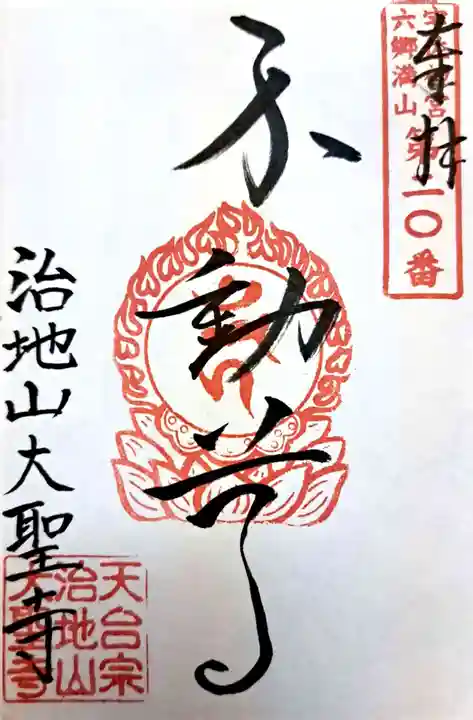 奉拝
六郷満山 第二〇番
不動尊
治地山大聖寺
天台宗
治地山
大聖寺